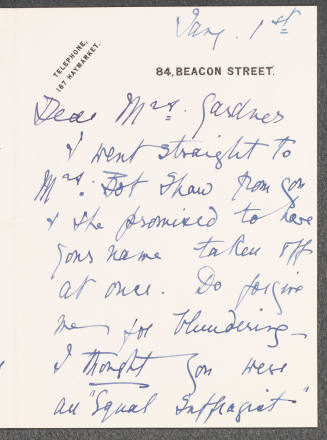 Jany. 1st
TELEPHONE,
167 HAYMARKET.
84, BEACON STREET.
Dear Mrs. Gardner
I went straight to
Mrs. Bob Shaw from you
& she promised to have
your name taken off
at once. Do forgive
me for blundering_
I thought you were
an "Equal Suffragist"